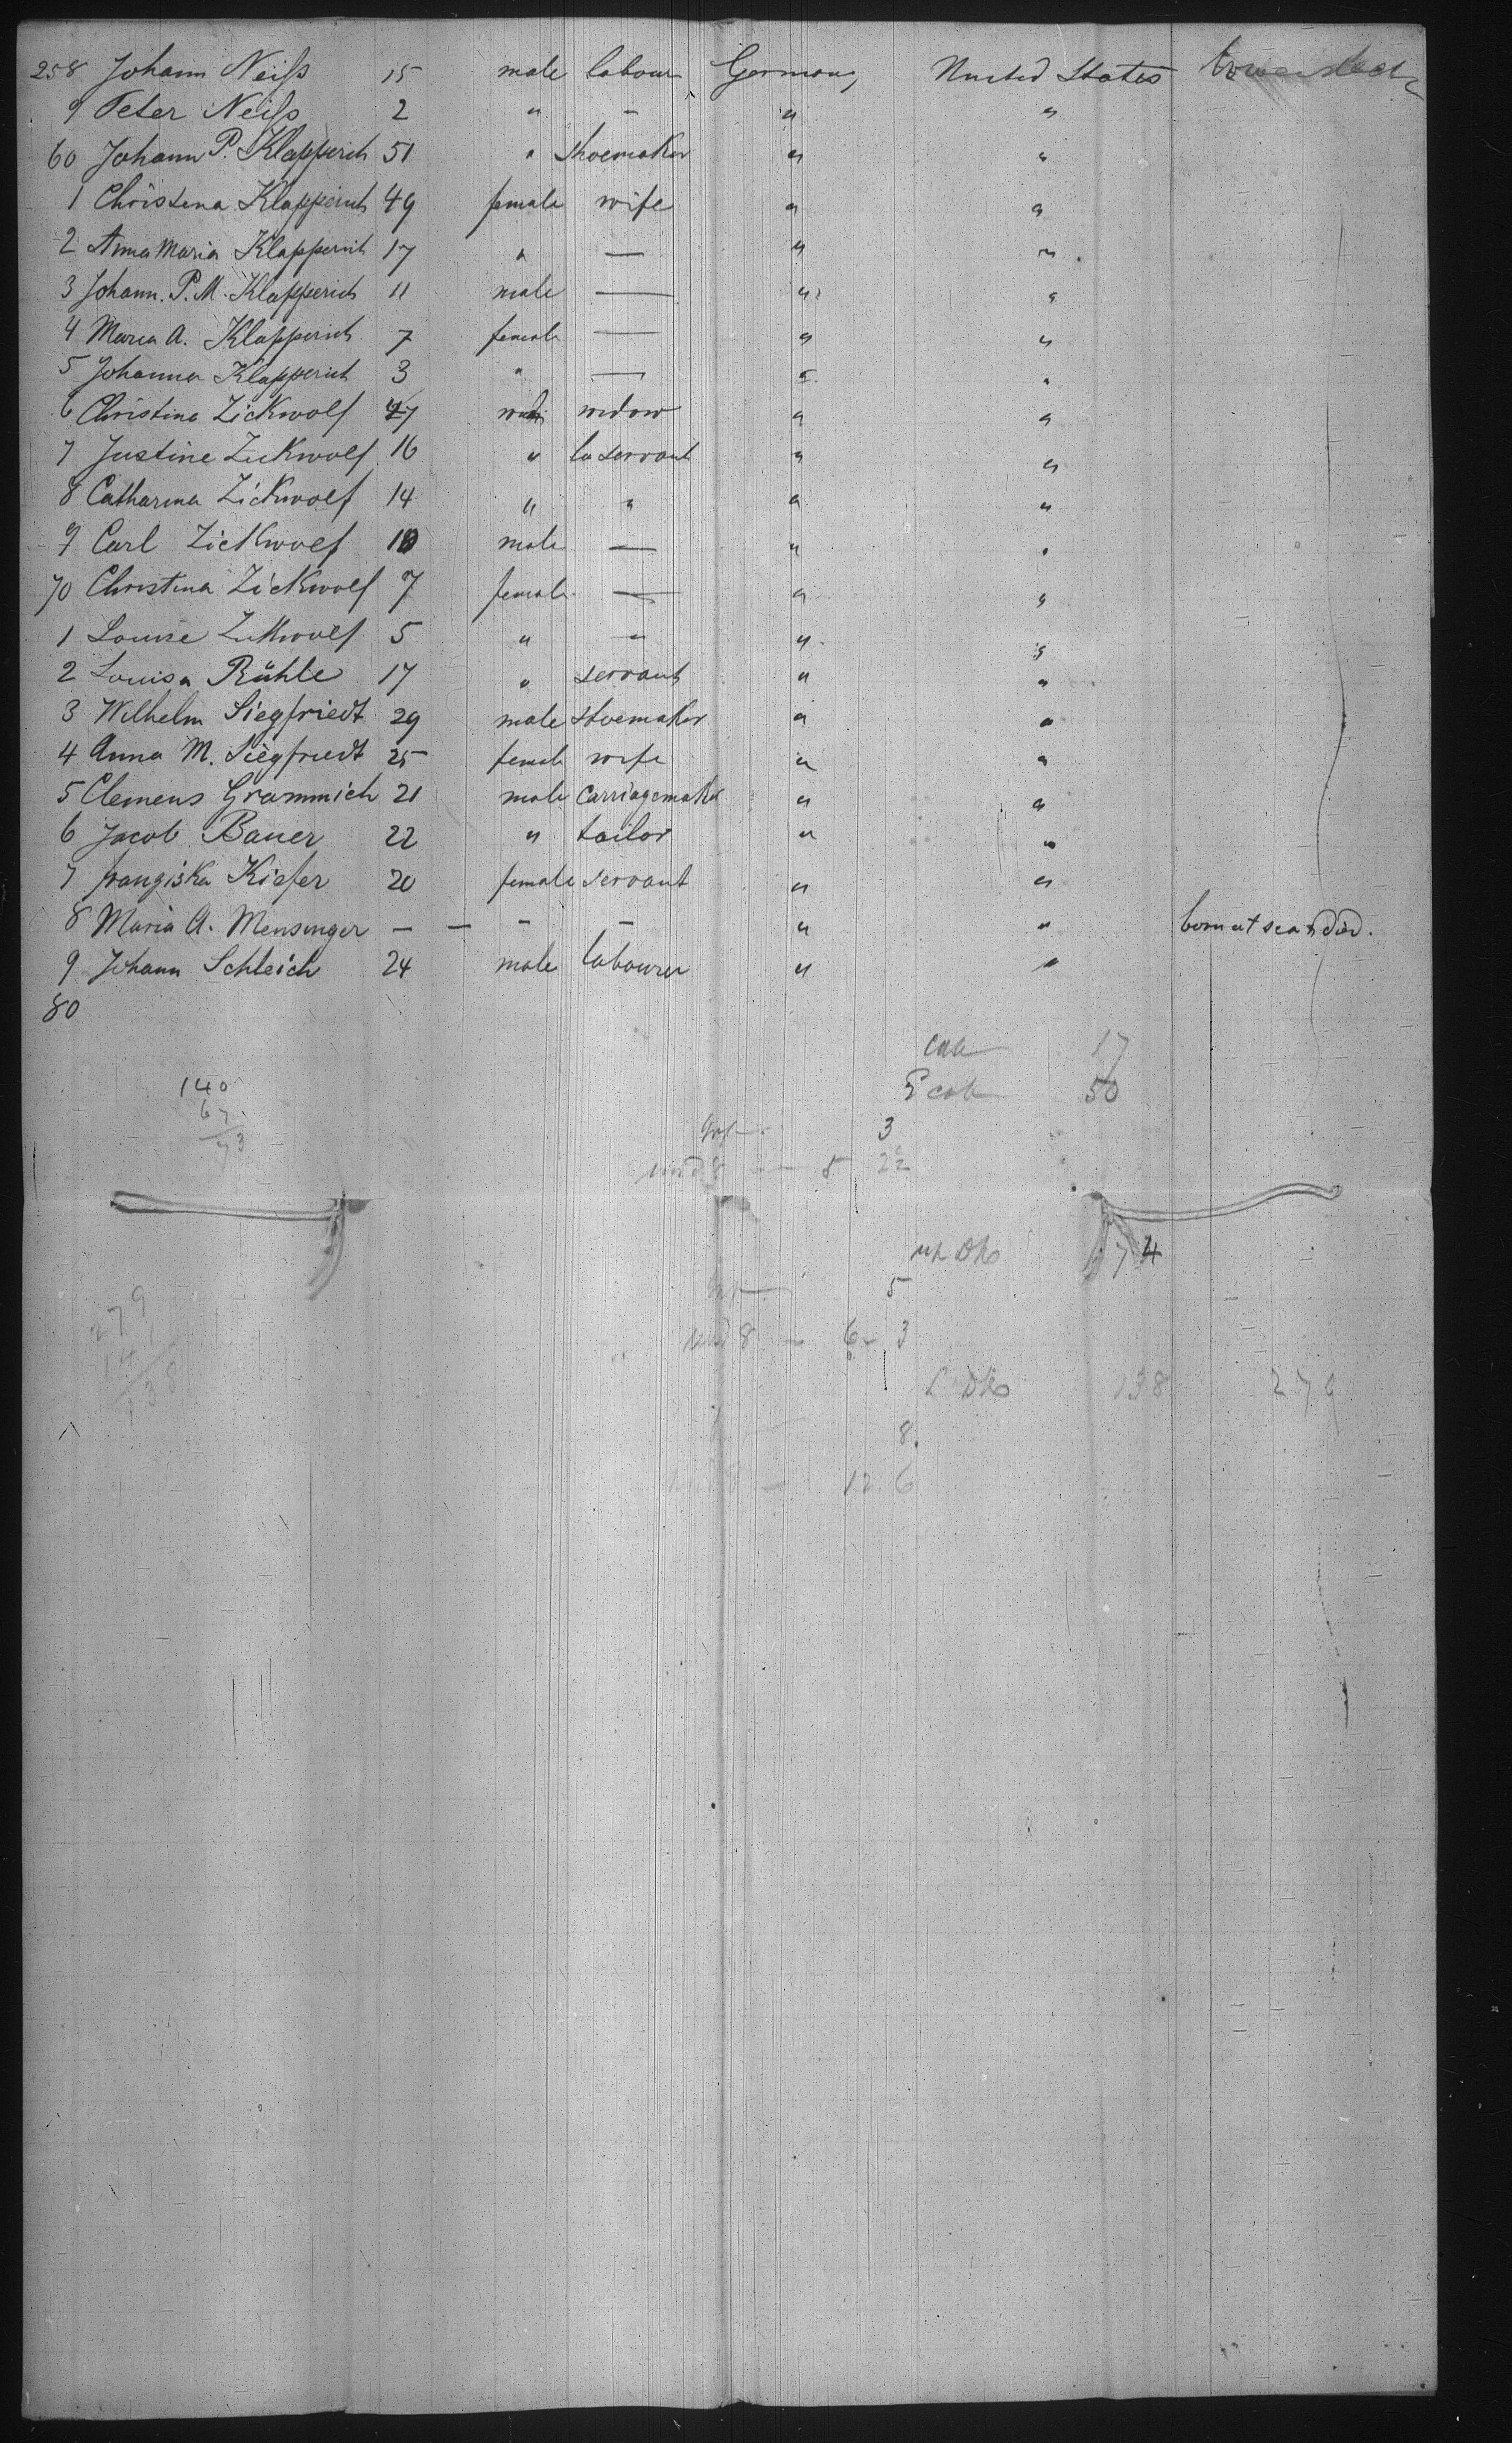 258 Johann Neiſs 15 male labour Germany United States Lowersteck
9 Peter Neiſs 2 " – " "
60 Johann P. Klapperich 51 " shoemaker " "
1 Christina Klapperich 49 female wife " "
2 Anna Maria Klapperich 17 " — " "
3 Johann. P. M. Klapperich 11 male — " "
4 Maria A. Klapperich 7 female — " "
5 Johanna Klapperich 3 " — " "
6 Christina Zickwolf 47 widow " "
7 Justine Zickwolf 16 " servant " "
8 Catharina Zickwolf 14 " " " "
9 Carl Zickwolf 10 male — " "
70 Christina Zickwolf 7 female — " "
1 Louise Zickwolf 5 " – " "
2 Louisa Rühle 17 " servant " "
3 Wilhelm Siegfriedt 29 male shoemaker " "
4 Anna M. Siegfriedt 25 female wife " "
5 Clemens Grammich 21 male carriagemaker " "
6 Jacob Bauer 22 " tailor " "
7 franziska Kiefer 20 female servant " "
8 Maria A. Mensinger – – – – " " born at sea & died.
9 Johann Schleich 24 male labourer " "
80
cab 17
140 2 cab 50
67
73
3
und 8 — 5 2
74
5
279 und 8 — 6 3
141
138
138 279
8.
12 6